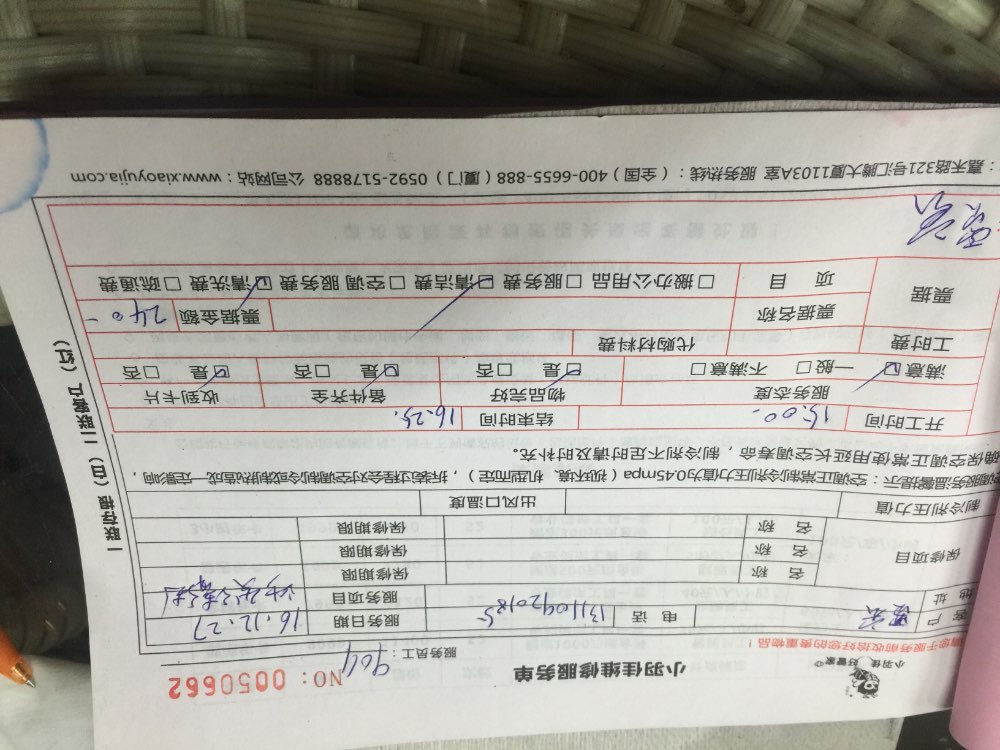 小羽佳 好管家®
小羽佳维修服务单
NO：0050662
请您于服务前收拾好您的贵重物品！
服务员工：904
客户 电话 13110920185 服务日期 16.12.27
地址 服务项目
保修项目 名称 保修期限
名称 保修期限
名称 保修期限
制冷剂压力值 出风口温度
调服务温馨提示：空调正常制冷剂压力值为0.45mpa（视环境、机型而定），拆装过程会对空调制冷或制热造成一定影响，
确保空调正常使用延长空调寿命，制冷剂不足时请及时补充。
开工时间 15:00- 结束时间 16.25.
服务态度 物品完好 留件齐全 收到卡片
满意☑ 一般□ 不满意□ ☑是 □否 ☑是 □否 ☑是 □否
工时费 代购材料费
票据 票据名称 票据金额 240-
项目 □搬办公用品 □服务费 ☑清洁费 □空调服务费 ☑清洗费 □疏通费
：嘉禾路321号汇腾大厦1103A室 服务热线：（全国）400-6655-888（厦门）0592-5178888 公司网站：www.xiaoyujia.com
一联存根（白）二联客户（红）